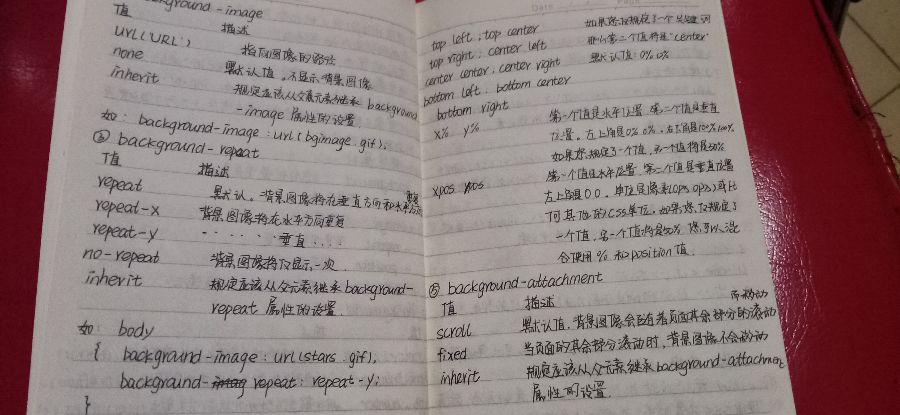 background-image
值 描述
URL('URL') 指向图像的路径
none 默认值。不显示背景图像
inherit 规定应该从父元素继承background
-image 属性的设置
如: background-image: url(bgimage.gif);
③ background-repeat
值 描述
repeat 默认。背景图像将在垂直方向和水平方向重复
repeat-x 背景图像将在水平方向重复
repeat-y ····· 垂直 ····
no-repeat 背景图像将仅显示一次
inherit 规定应该从父元素继承background-
repeat 属性的设置
如: body
{ background-image: url(stars.gif);
background-repeat: repeat-y;
}
top left; top center 如果您仅规定了一个关键词
top right; center left 那么第二个值将是"center"
center center; center right 默认值: 0% 0%
bottom left; bottom center
bottom right
x% y% 第一个值是水平位置 第二个值是垂直
位置。左上角是0% 0%。右下角是100% 100%
如果您规定了一个值,另一个值将是50%
xpos ypos 第一个值是水平位置 第二个值是垂直位置
左上角是0 0。单位是像素(0px 0px)或任
何其他的CSS单位,如果您仅规定了
一个值,另一个值将是50% 您可以混
合使用 % 和position值
⑤ background-attachment
值 描述
scroll 默认值。背景图像会随着页面其余部分的滚动而移动
fixed 当页面的其余部分滚动时,背景图像不会移动
inherit 规定应该从父元素继承background-attachment
属性的设置